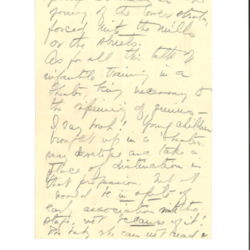 young of the lower
forced into the mills
or the streets.
As for all the talk of
infantile training in a
theater, being necessary to
the ripening of genius —
I say bosh! Young children
brought up in a theater
may develope and take a
place of distinction in
that profession. But it
would be in spite of
early association with the
stage, not because of it!
The baby who can not read a